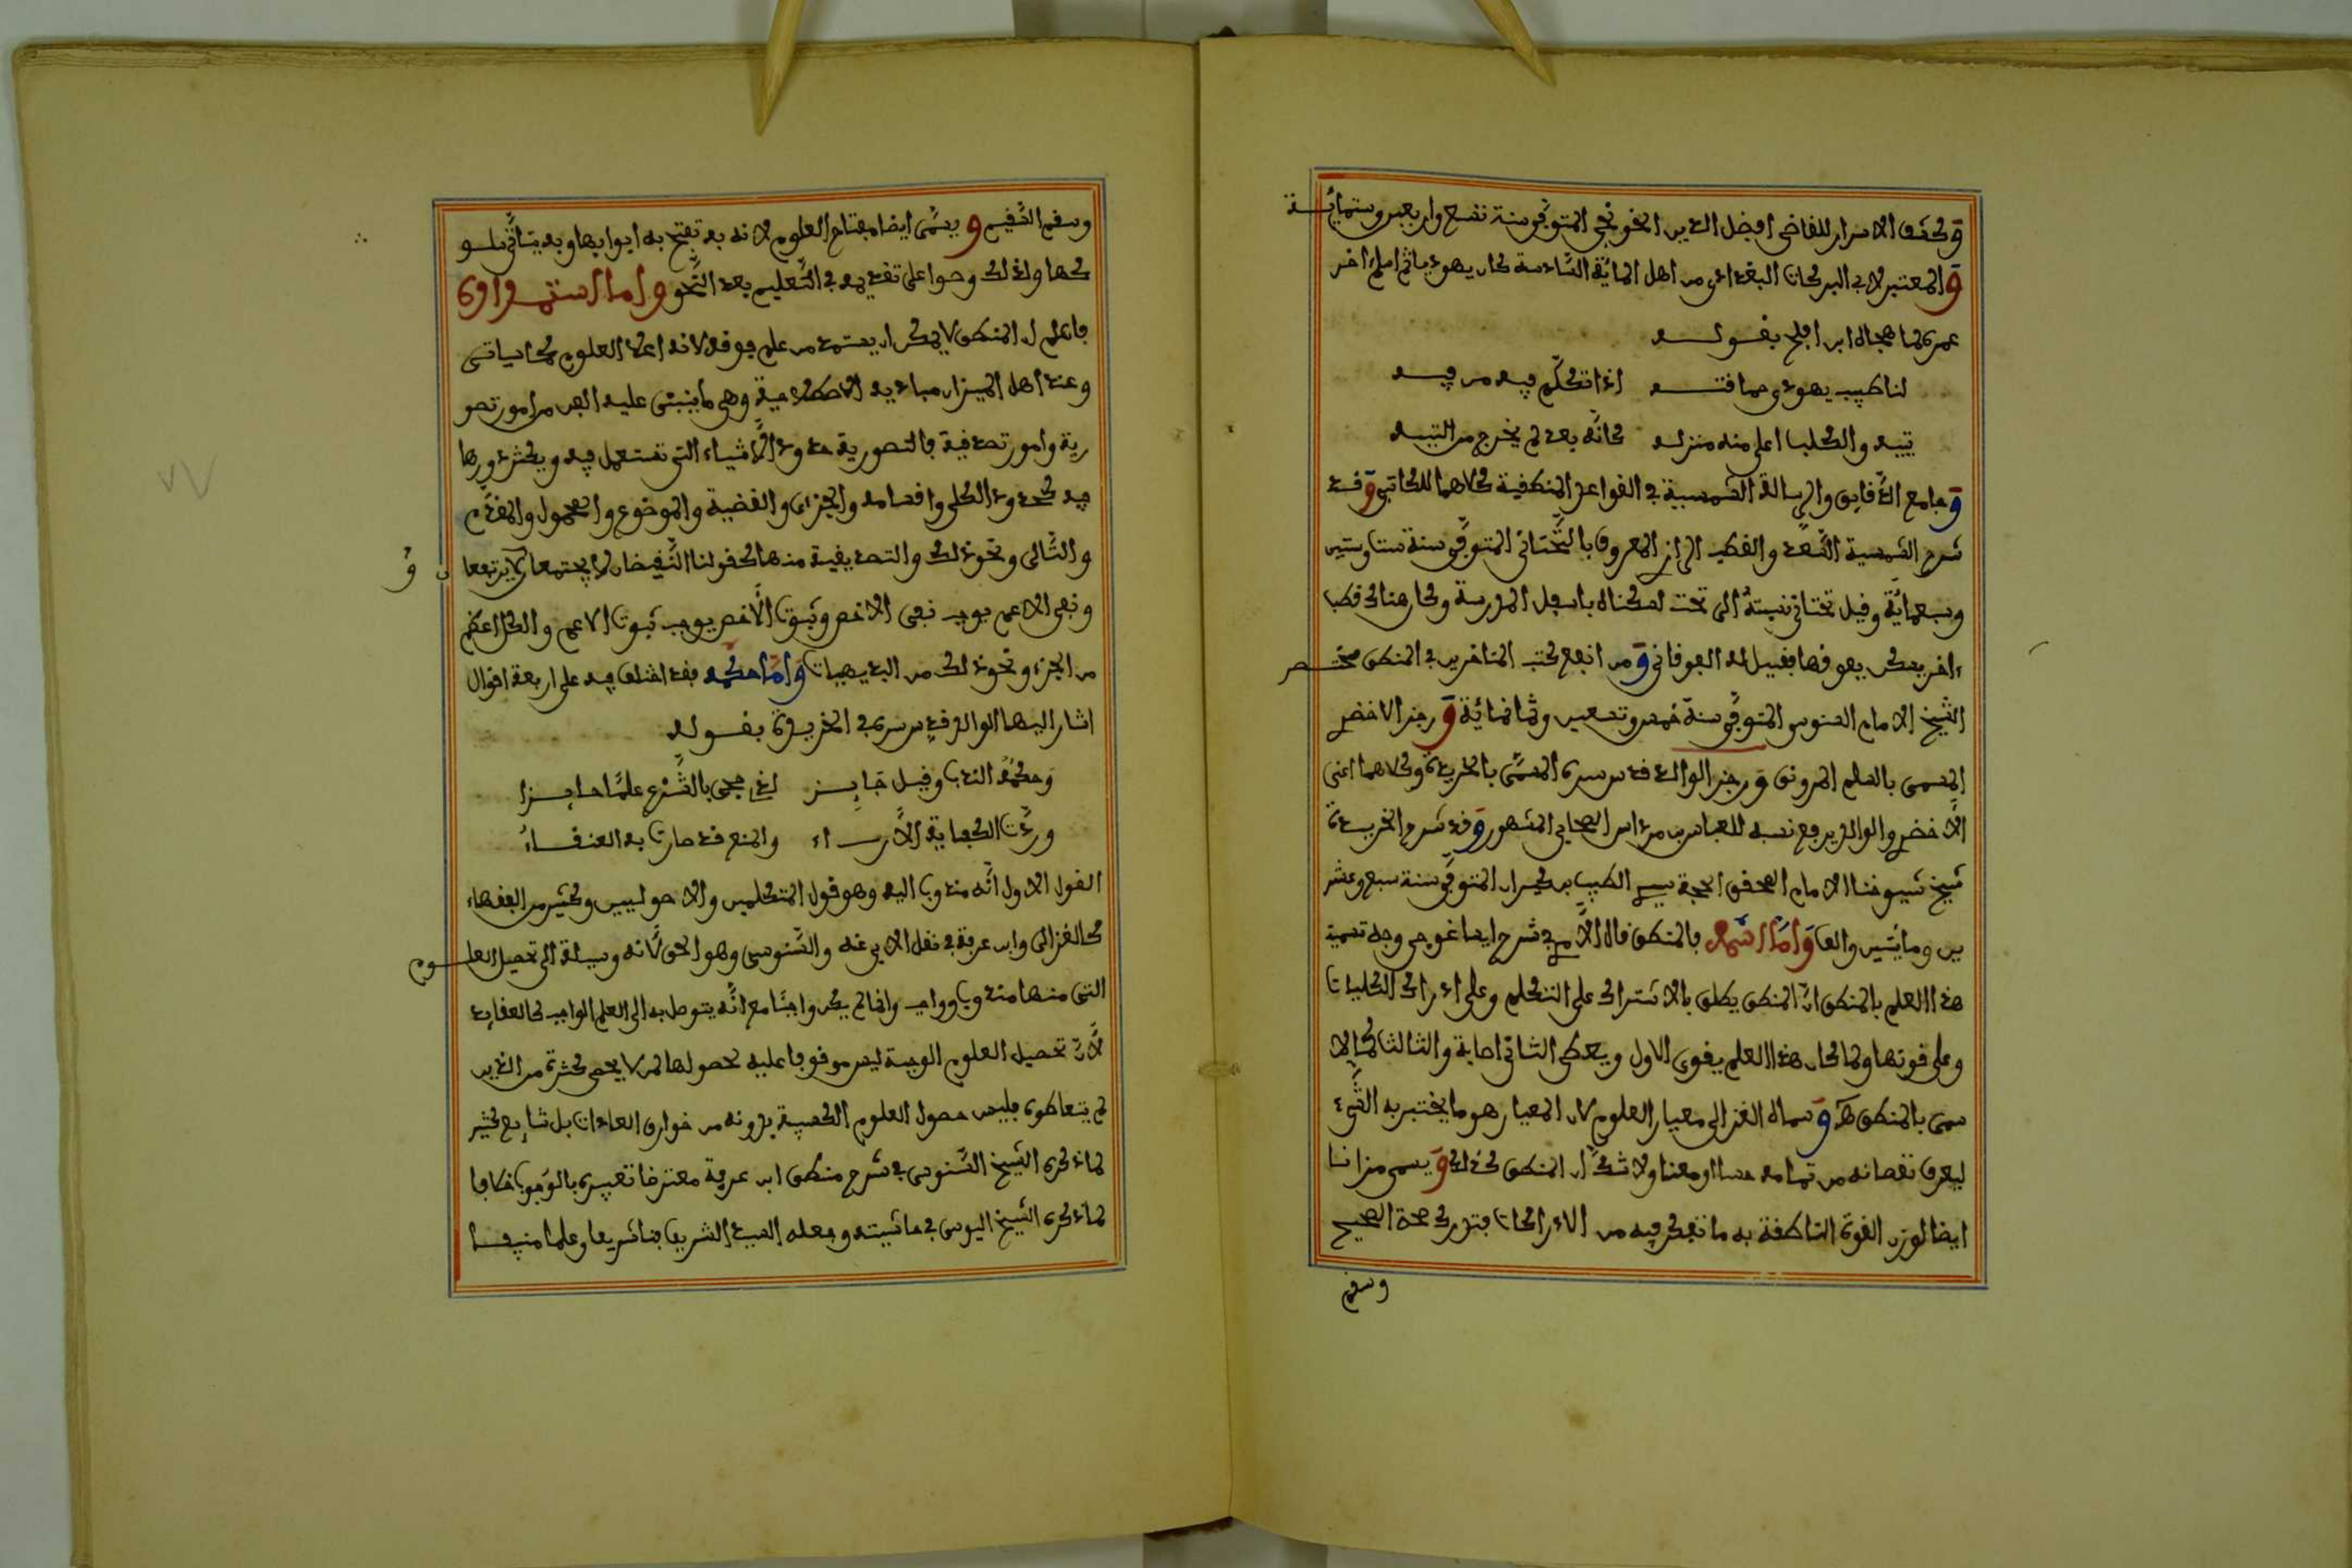 وكشف الاسرار للقاضي افضل الدين الخونجي المتوفى سنة تسع واربعين وستمائة
والمعتبر لابي البركات البغدادي من اهل المائة السادسة كان يهوديا ثم اسلم اخر
عمره لما هجاه ابن افلح بقوله
لنا طبيب يهودي حماقته اذا تكلم فيه من فيه
تيبه والكلب اعلى منه منزلة كانه بعد لم يخرج من التيه
وجامع الدقايق والرسالة الشمسية في القواعد المنطقية كلاهما للكاتبي وقد
شرح الشمسية السعد والقطب الرازي المعروف بالتحتاني المتوفى سنة ست وستين
وسبعماية وقيل تحتاني نسبة الى تحت لسكناه باسفل المدرسة وكان هناك قطب
ءاخر يسكن بعوفها فقيل له الفوقاني ومن انفع كتب المتاخرين في المنطق مختصر
الشيخ الامام السنوسي المتوفى سنة خمس وتسعين وثمانمائة ورجز الاخضري
المسمى بالسلم المرونق ورجز الوالد قدس سره المسمى بالخريدة وكلاهما اعني
الاخضري والوالد يرفع نسبه للعباس بن مرداس الصحابي المشهور وقد شرح الخريدة
شيخ شيوخنا الامام المحقق الحجة سيدي الطيب بن كيران المتوفى سنة سبع وعشر
ين ومايتين والف واما اسمه فالمنطق قال في شرح ايساغوجي وجه تسمية
هذا العلم بالمنطق ان المنطق يطلق بالاشتراك على التكلم وعلى ادراك الكليات
وعلى قوتها ولما كان هذا العلم يقوي الاول ويعطي الثاني اصابة والثالث كمالا
سمي بالمنطق وسماه الغزالي معيار العلوم لان المعيار هو ما يختبر به الشيء
ليعرف نقصانه من تمامه حسا او معنا ولا شك ان المنطق كذالك ويسمى مزانا
ايضا لوزن القوة الناطقة به ما تفكر فيه من الادراكات فتدرك صحة الصحيح
وسقم
وسقم السقيم ويسمى ايضا مفتاح العلوم لانه به تفتح به ابوابها وبه يتاتى سلو
كها ولذلك وصوا على تقديمه في التعليم بعد النحو واما استمداده
فاعلم ان المنطق لا يمكن ان يستمد من علم فوقه لانه اعلا العلوم كما سياتي
وعند اهل الميزان مباديه الاصطلاحية وهي ما ينبني عليه الفن من امور تصو
رية وامور تصديقية فالتصورية حدود الاشياء التي تستعمل فيه ويكثر دورها
فيه كحدود الكلي واقسامه والجزءي والقضية والموضوع والمحمول والمقدم
والتالي ونحو ذلك والتصديقية منها كقولنا النقيضان لا يجتمعان ولا يرتفعا
ن و
ونفي الاعم يوجب نفي الاخص وثبوت الاخص يوجب ثبوت الاعم والكل اعظم
من الجزء ونحو ذلك من البديهيات واما حكمه فقد اختلف فيه على اربعة اقوال
اشار اليها الوالد قدس سره في الخريدة بقوله
وحكمه الندب وقيل جايز اذ يجي بالشرع علما حايزا
ورءت الكفاية الاراء والمنع قد صارت به العنقاء
القول الاول انه مندوب اليه وهو قول المتكلمين والاصوليين وكثير من الفقهاء
كالغزالي وابن عرفة في نقل الابي عنه والسنوسي وهو الحق لانه وسيلة الى تحصيل العلوم
التي منها مندوب وواجب وانما لم يكن واجبا مع انه يتوصل به الى العلم الواجب كالعقايد
لان تحصيل العلوم الوجبة ليس موقوفا عليه لحصولها لمن لا يحصى كثرة من الذين
لم يتعاطوه فليس حصول العلوم الكسبية بدونه من خوارق العادات بل شايع كثير
كما ذكره الشيخ السنوسي في شرح منطق ابن عرفة معترضا تعبيره بالوجوب خلافا
لما ذكره الشيخ اليوسي في حاشيته وجعله السيد الشريف فنا شريفا وعلما منيفا